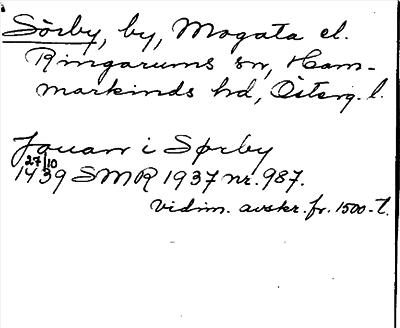 Sörby, by, Mogata el.
Ringarums sn, Ham-
markinds hd, Österg. l.
Jouan i Sørby
27/10
1439 SMR 1937 nr. 987.
vidim. avskr. fr. 1500-t.